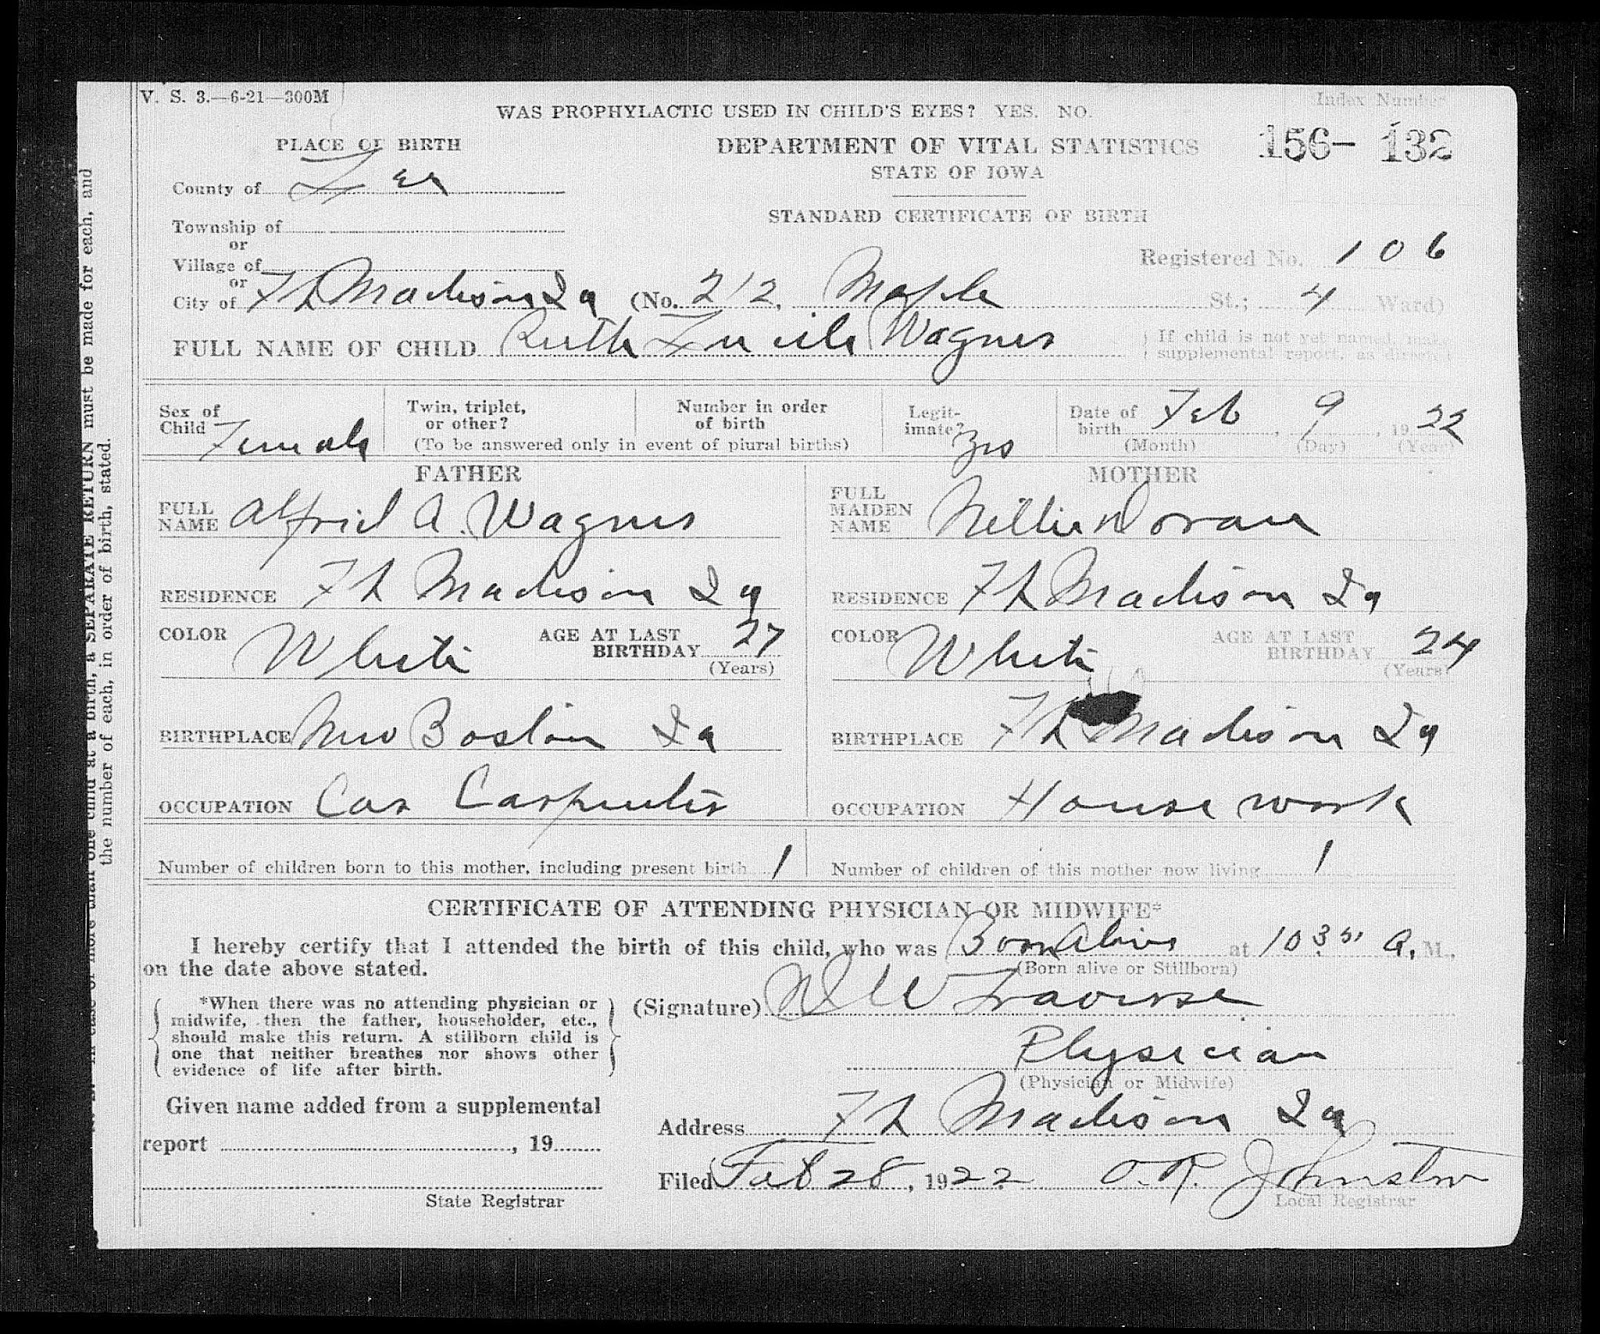 V. S. 3.—6-21—300M
Index Number
WAS PROPHYLACTIC USED IN CHILD'S EYES? YES. NO.
156- 132
PLACE OF BIRTH
DEPARTMENT OF VITAL STATISTICS
STATE OF IOWA
County of Lee
STANDARD CERTIFICATE OF BIRTH
Township of
or
Registered No. 106
Village of
or
City of Ft Madison Ia (No. 212, Maple St.; 4 Ward)
FULL NAME OF CHILD Ruth Lucile Wagner
(If child is not yet named, make
supplemental report, as directed
Sex of Child Female
Twin, triplet, or other?
Number in order of birth
(To be answered only in event of plural births)
Legit-imate? Yes
Date of birth Feb, 9, 1922
(Month) (Day) (Year)
FATHER
MOTHER
FULL NAME Alfred A. Wagner
FULL MAIDEN NAME Nellie Doran
RESIDENCE Ft Madison Ia
RESIDENCE Ft Madison Ia
COLOR White AGE AT LAST BIRTHDAY 27 (Years)
COLOR White AGE AT LAST BIRTHDAY 24 (Years)
BIRTHPLACE New Boston Ia
BIRTHPLACE Ft Madison Ia
OCCUPATION Car Carpenter
OCCUPATION House work
Number of children born to this mother, including present birth 1
Number of children of this mother now living 1
CERTIFICATE OF ATTENDING PHYSICIAN OR MIDWIFE*
I hereby certify that I attended the birth of this child, who was Born Alive at 10 30 A. M.,
on the date above stated.
(Born alive or Stillborn)
*When there was no attending physician or
midwife, then the father, householder, etc.,
should make this return. A stillborn child is
one that neither breathes nor shows other
evidence of life after birth.
(Signature) Traverse
Physician
(Physician or Midwife)
Given name added from a supplemental
report , 19
Address Ft Madison Ia
Filed Feb 28, 1922 O.R. Johnston
State Registrar
Local Registrar
must be made for each, and
a SEPARATE RETURN
the number of each, in order of birth, stated.